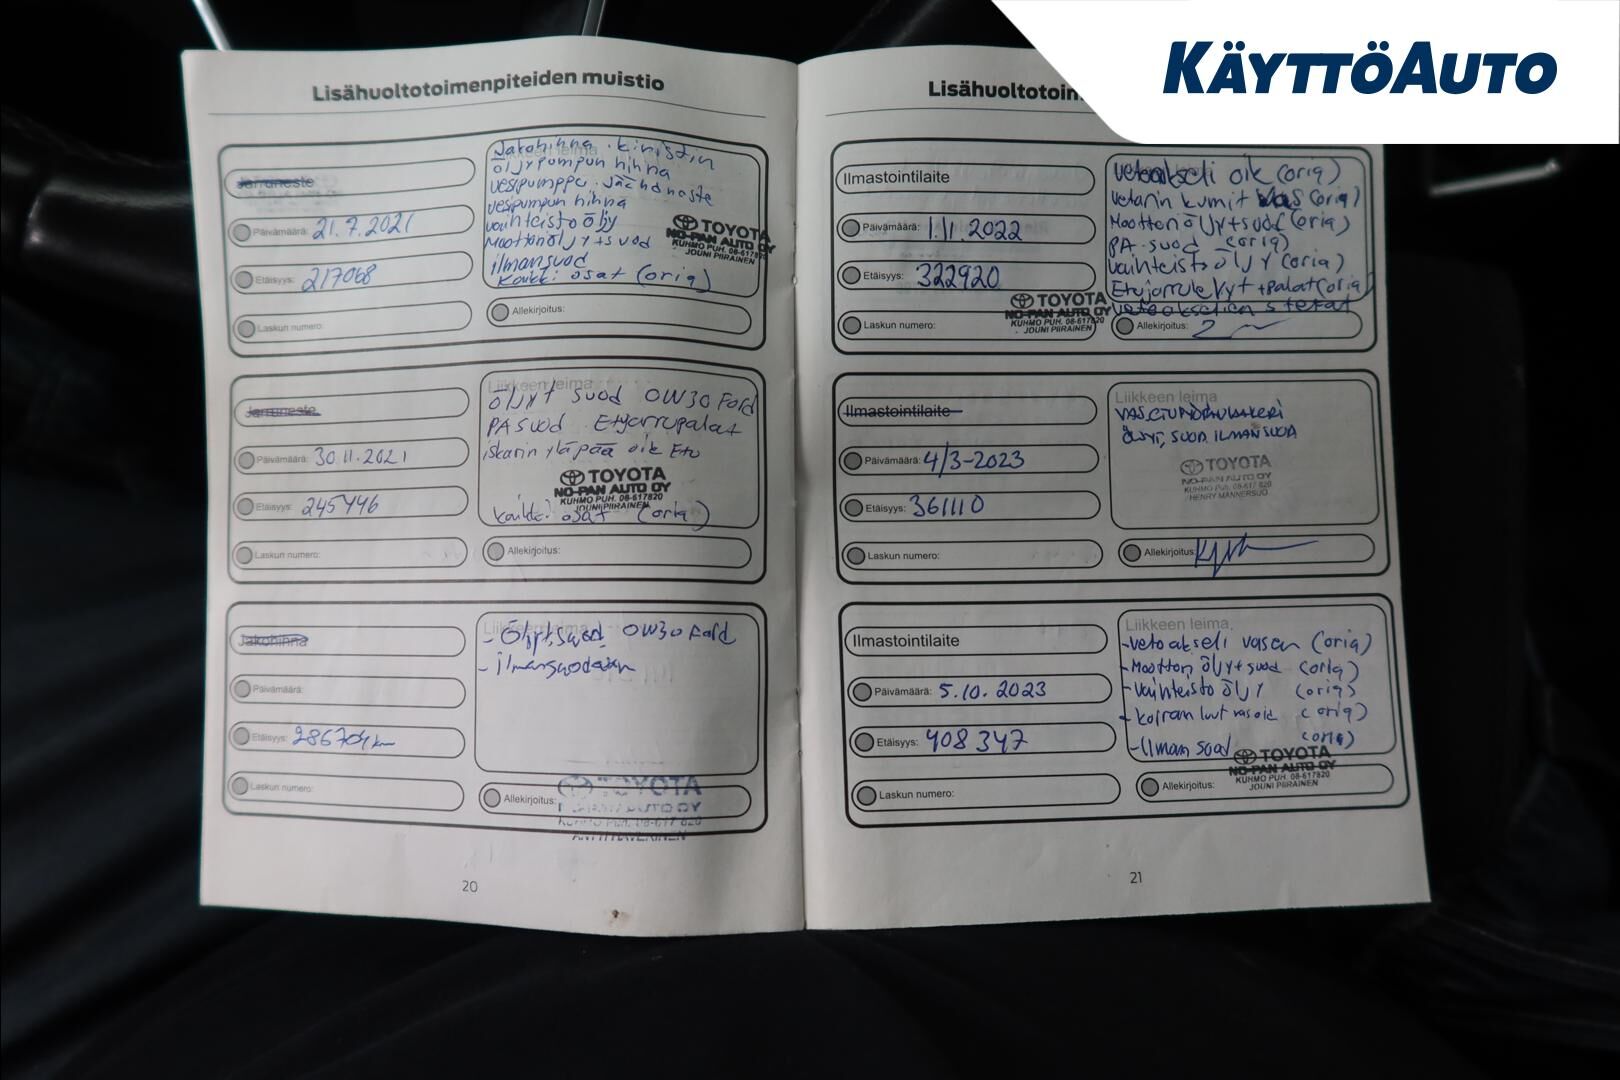 KÄYTTÖAUTO
Lisähuoltotoimenpiteiden muistio
Jarruneste
Päivämäärä: 21.7.2021
Etäisyys: 217068
Laskun numero:
Jakohihna . kiristin
öljypumpun hihna
vesipumppu . jäähdneste
vesipumpun hihna
vaihteisto öljy
Moottoriöljy+suod
ilmansuod
kaikki osat (orig)
TOYOTA
NO-PAN AUTO OY
KUHMO PUH. 08-617820
JOUNI PIIRAINEN
Allekirjoitus:
Jarruneste
Päivämäärä: 30.11.2021
Etäisyys: 245446
Laskun numero:
Liikkeen leima
Öljyt suod 0W30 Ford
PA suod Etujarrupalat
iskarin yläpää oik Etu
TOYOTA
NO-PAN AUTO OY
KUHMO PUH. 08-617820
JOUNI PIIRAINEN
kaikki osat (orig)
Allekirjoitus:
Jakohihna
Päivämäärä:
Etäisyys: 286704 km
Laskun numero:
Liikkeen leima
- Öljyt, suod 0W30 Ford
- ilmansuodatin
Allekirjoitus:
TOYOTA
NO-PAN AUTO OY
KUHMO PUH. 08-617 820
20
Lisähuoltotoim
Ilmastointilaite
Päivämäärä: 1.11.2022
Etäisyys: 322920
Laskun numero:
vetoakseli oik (orig)
vetarin kumit vas (orig)
Moottoriöljy+suod (orig)
PA suod (orig)
vaihteisto öljy (orig)
Etujarrulevyt+palat (orig)
TOYOTA
NO-PAN AUTO OY
KUHMO PUH. 08-617820
JOUNI PIIRAINEN
Allekirjoitus:
Ilmastointilaite
Päivämäärä: 4/3-2023
Etäisyys: 361110
Laskun numero:
Liikkeen leima
ÖLJYT, SUOD. ILMANSUOD
TOYOTA
NO-PAN AUTO OY
KUHMO PUH. 08-617 820
HENRY MANNERSUO
Allekirjoitus:
Ilmastointilaite
Päivämäärä: 5.10.2023
Etäisyys: 408 347
Laskun numero:
Liikkeen leima
- vetoakseli vasen (orig)
- Moottori öljy+suod (orig)
- vaihteisto öljy (orig)
- koiran luut vas oik (orig)
- Ilman suod (orig)
TOYOTA
NO-PAN AUTO OY
KUHMO PUH. 08-617820
JOUNI PIIRAINEN
Allekirjoitus:
21